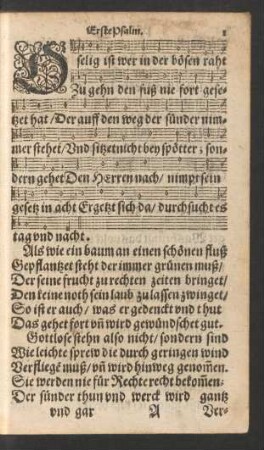 Erste Psalm. 1
O
selig ist wer in der bösen raht
Zu gehn den fuß nie fort gese-
tzet hat/ Der auff den weg der sünder nim-
mer stehet/ Vnd sitzet nicht bey spötter; son-
dern gehet Den HErren nach/ nimpt sein
gesetz in acht Ergetzt sich da/ durchsucht es
tag vnd nacht.
Als wie ein baum an einen schönen fluß
Gepflantzet steht der immer grünen muß/
Der seine frucht zu rechten zeiten bringet/
Den keine noth sein laub zu lassen zwinget/
So ist er auch/ was er gedenckt vnd thut
Das gehet fort vn̄ wird gewündschet gut.
Gottlose stehn also nicht/ sondern sind
Wie leichte sprew die durch geringen wind
Verfliegē muß/ vn̄ wird hinweg genom̄en.
Sie werden nie für Rechte recht bekom̄en.
Der sünder thun vnd werck wird gantz
vnd gar A Ver-